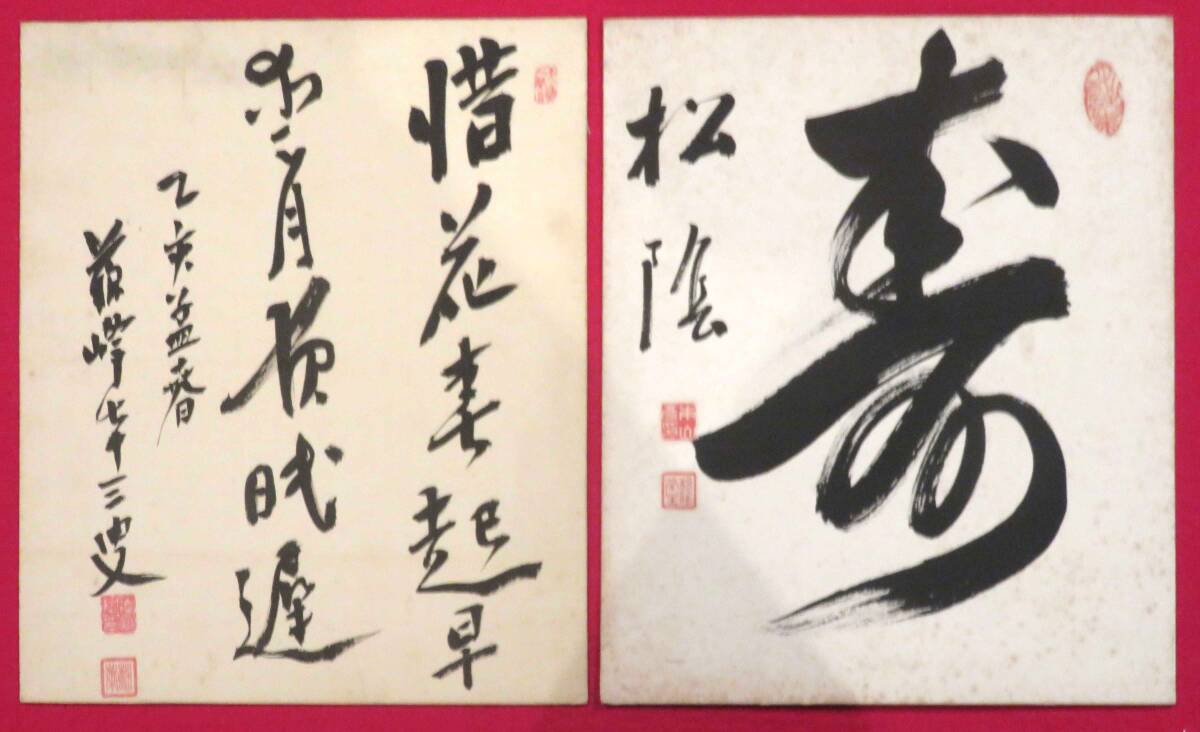 寿
松陰
惜花春起早
愛月夜眠遲
乙亥孟春
蘇峰七十三叟